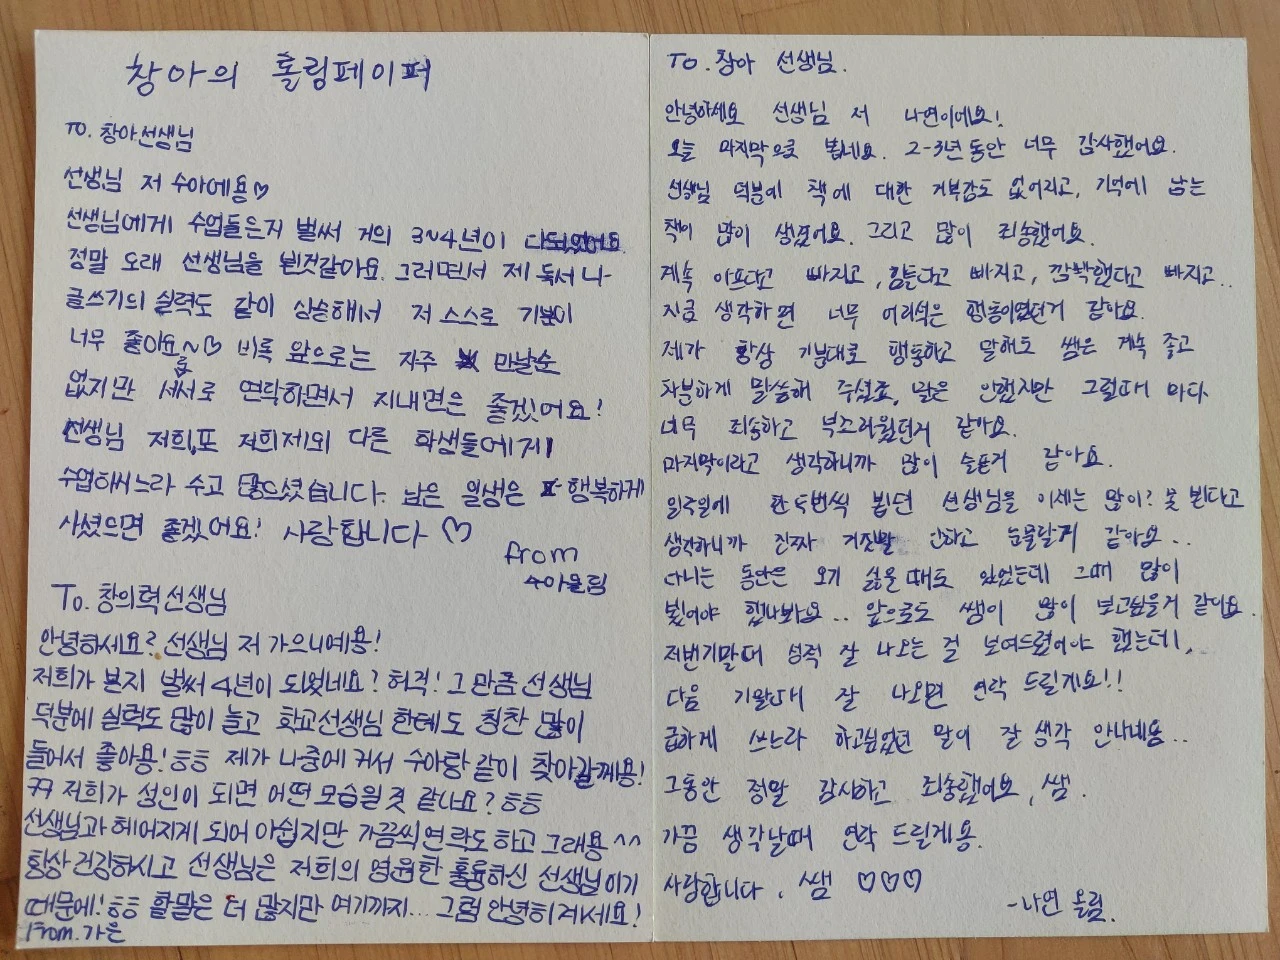 창아의 롤링페이퍼
TO. 창아선생님
선생님 저 수아에용♡
선생님에게 수업들은지 벌써 거의 3~4년이 다되었어요
정말 오래 선생님을 뵌것같아요. 그러면서 제 독서 나
글쓰기의 실력도 같이 상승해서 저 스스로 기분이
너무 좋아요~♡ 비록 앞으로는 자주 만날순
없지만 서로 연락하면서 지내면은 좋겠어요!
선생님 저희,또 저희제외 다른 학생들에게
수업하시느라 수고 많으셨습니다. 남은 일생은 행복하게
사셨으면 좋겠어요! 사랑합니다 ♡
from
수아올림
To. 창의력선생님
안녕하세요? 선생님 저 가으니예용!
저희가 본지 벌써 4년이 되었네요? 허걱! 그 만큼 선생님
덕분에 실력도 많이 늘고 학교선생님 한테도 칭찬 많이
들어서 좋아용! ㅎㅎ 제가 나중에 커서 수아랑 같이 찾아갈께용!
ㅋㅋ 저희가 성인이 되면 어떤 모습일 것 같나요? ㅎㅎ
선생님과 헤어지게 되어 아쉽지만 가끔씩 연락도 하고 그래용 ^^
항상 건강하시고 선생님은 저희의 영원한 훌륭하신 선생님이기
때문에! ㅎㅎ 할말은 더 많지만 여기까지... 그럼 안녕히계세요!
From. 가은
TO. 창아 선생님.
안녕하세요 선생님 저 나연이에요!
오늘 마지막으로 뵙네요. 2-3년 동안 너무 감사했어요.
선생님 덕분에 책에 대한 거부감도 없어지고, 기억에 남는
책이 많이 생겼어요. 그리고 많이 죄송했어요.
계속 아프다고 빠지고, 힘든다고 빠지고, 깜빡했다고 빠지고..
지금 생각하면 너무 어리석은 행동이였던거 같아요.
제가 항상 기분대로 행동하고 말해도 쌤은 계속 좋고
차분하게 말씀해 주셨죠, 말은 안했지만 그럴때 마다
너무 죄송하고 부끄러웠던거 같아요.
마지막이라고 생각하니까 많이 슬픈거 같아요.
일주일에 한두번씩 뵙던 선생님을 이제는 많이? 못 뵌다고
생각하니까 진짜 거짓말 안하고 눈물날게 같아요..
다니는 동안은 오기 싫을때도 있었는데 그때 많이
뵜어야 했나봐요.. 앞으로도 쌤이 많이 보고싶을거 같아요.
저번기말때 성적 잘 나오는 걸 보여드렸어야 했는데,
다음 기말때 잘 나오면 연락 드릴게요!!
급하게 쓰느라 하고싶었던 말이 잘 생각 안나네용..
그동안 정말 감사하고 죄송했어요, 쌤.
가끔 생각날때 연락 드릴게용.
사랑합니다, 쌤 ♡♡♡
-나연 올림.